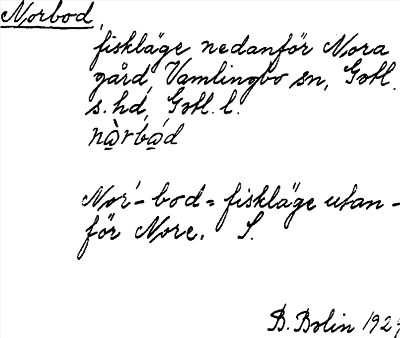 Norbod,
fiskläge nedanför Nora
gård, Vamlingbo sn, Gotl.
s. hd, Gotl. l.
nò̱rbó̱d
Nor'-bod = fiskläge utan-
för Nore. S.
B. Bolin